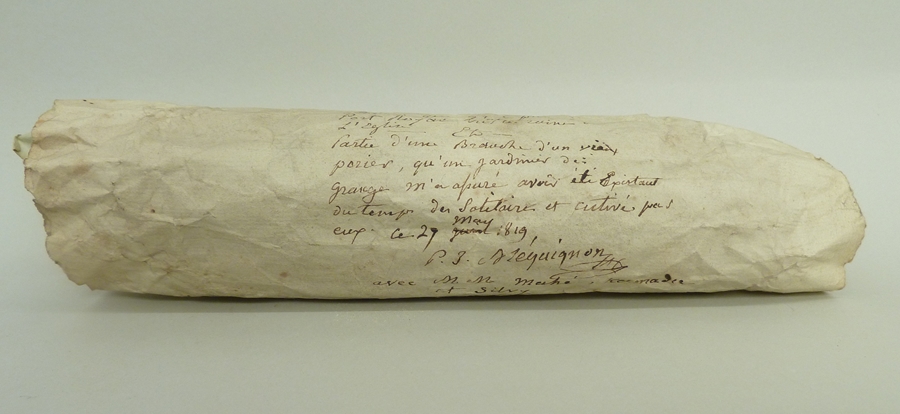 L'Eglise Et
Partie d'une Branche d'un vieux
porier, qu'un jardinier de:
grange m'a assuré avoir été Existant
du temps des Solitaire et cutivé pas
eux. ce 29 May juin 1819
P. J. Méquignon
avec M M Mahé,
et Silvy